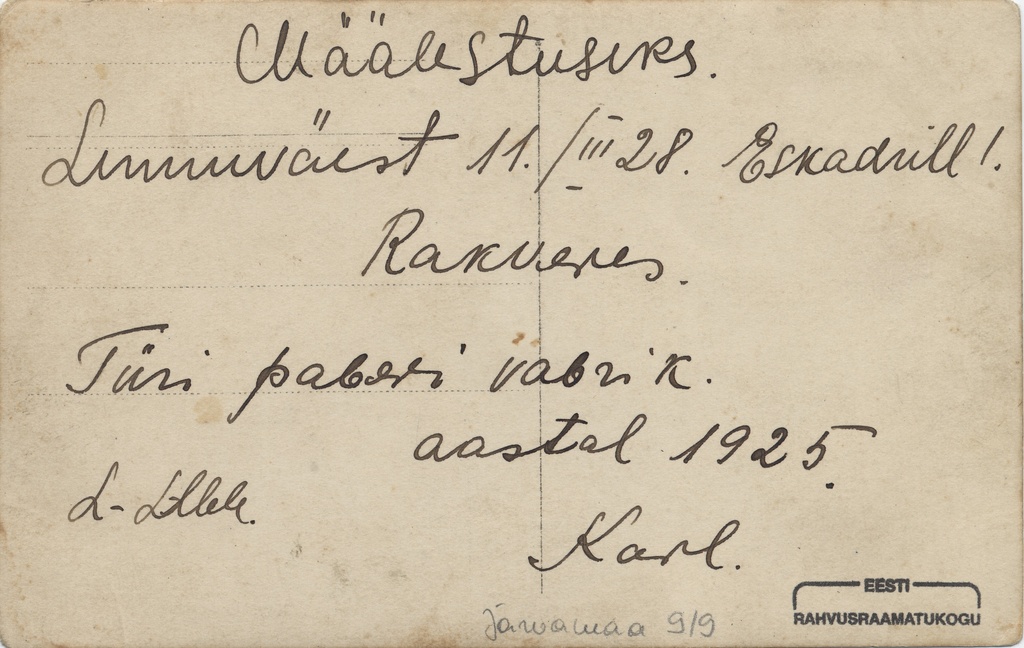 Määlestuseks.
Lennuväest 11./III 28. Eskadrill!.
Rakveres.
Türi paberi vabrik.
aastal 1925.
L-
Karl.
Järvamaa 9/9
EESTI
RAHVUSRAAMATUKOGU